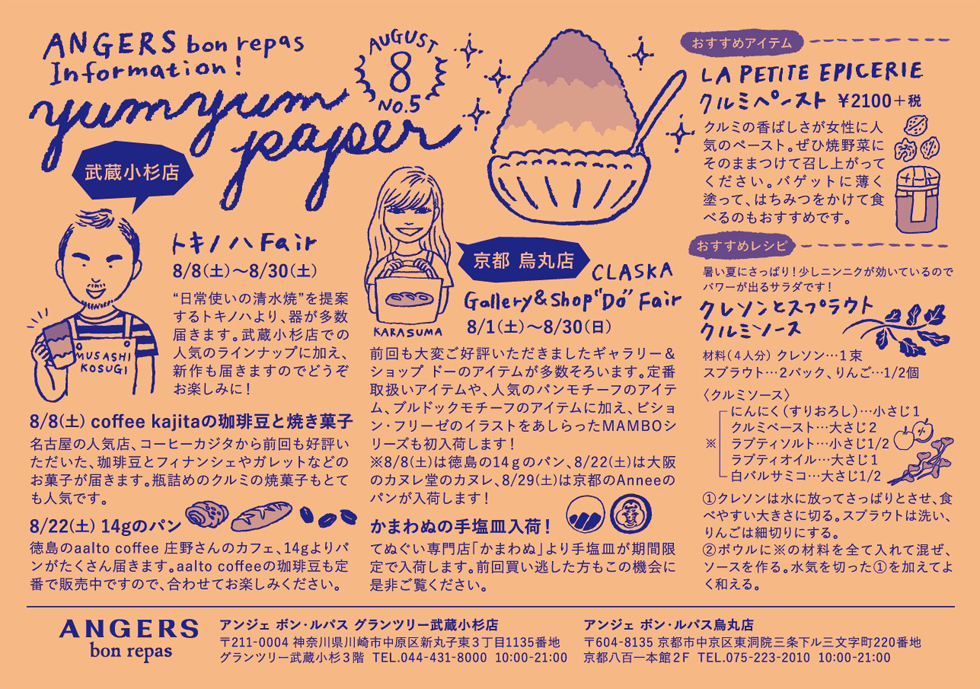 ANGERS bon repas
Information!
yumyum
paper
AUGUST
8
NO.5
武蔵小杉店
MUSASHI
KOSUGI
トキノハ Fair
8/8(土)〜8/30(土)
“日常使いの清水焼”を提案
するトキノハより、器が多数
届きます。武蔵小杉店での
人気のラインナップに加え、
新作も届きますのでどうぞ
お楽しみに!
8/8(土) coffee kajitaの珈琲豆と焼き菓子
名古屋の人気店、コーヒーカジタから前回も好評い
ただいた、珈琲豆とフィナンシェやガレットなどの
お菓子が届きます。瓶詰めのクルミの焼菓子もとて
も人気です。
8/22(土) 14gのパン
徳島のaalto coffee 庄野さんのカフェ、14gよりパ
ンがたくさん届きます。aalto coffeeの珈琲豆も定
番で販売中ですので、合わせてお楽しみください。
KARASUMA
京都 烏丸店
CLASKA
Gallery&Shop"Do" Fair
8/1(土)〜8/30(日)
前回も大変ご好評いただきましたギャラリー&
ショップ ドーのアイテムが多数そろいます。定番
取扱いアイテムや、人気のパンモチーフのアイテ
ム、ブルドックモチーフのアイテムに加え、ビショ
ン・フリーゼのイラストをあしらったMAMBOシ
リーズも初入荷します!
※8/8(土)は徳島の14gのパン、8/22(土)は大阪
のカヌレ堂のカヌレ、8/29(土)は京都のAnneeの
パンが入荷します!
かまわぬの手塩皿入荷!
てぬぐい専門店「かまわぬ」より手塩皿が期間限
定で入荷します。前回買い逃した方もこの機会に
是非ご覧ください。
おすすめアイテム
LA PETITE EPICERIE
クルミペースト ¥2100+税
クルミの香ばしさが女性に人
気のペースト。ぜひ焼野菜に
そのままつけて召し上がって
ください。バゲットに薄く
塗って、はちみつをかけて食
べるのもおすすめです。
おすすめレシピ
暑い夏にさっぱり!少しニンニクが効いているので
パワーが出るサラダです!
クレソンとスプラウト
クルミソース
材料(4人分) クレソン…1束
スプラウト…2パック、りんご…1/2個
〈クルミソース〉
※
にんにく(すりおろし)…小さじ1
クルミペースト…大さじ2
ラブティソルト…小さじ1/2
ラブティオイル…大さじ1
白バルサミコ…大さじ1/2
①クレソンは水に放ってさっぱりとさせ、食
べやすい大きさに切る。スプラウトは洗い、
りんごは細切りにする。
②ボウルに※の材料を全て入れて混ぜ、
ソースを作る。水気を切った①を加えてよ
く和える。
ANGERS
bon repas
アンジェ ボン・ルパス グランツリー武蔵小杉店
〒211-0004 神奈川県川崎市中原区新丸子東3丁目1135番地
グランツリー武蔵小杉3階 TEL.044-431-8000 10:00-21:00
アンジェ ボン・ルパス烏丸店
〒604-8135 京都市中京区東洞院三条下ル三文字町220番地
京都八百一本館2F TEL.075-223-2010 10:00-21:00